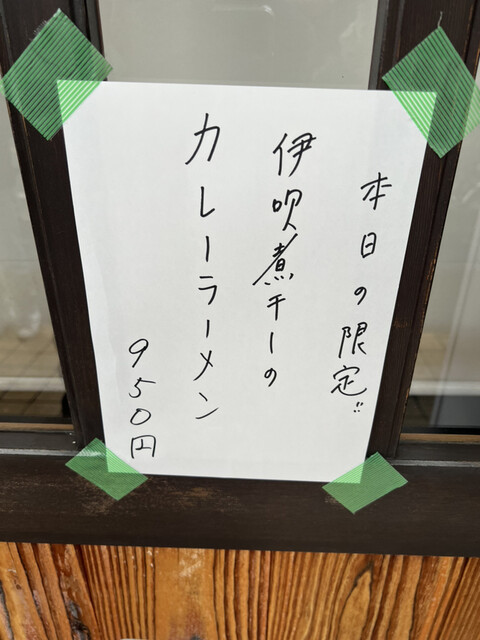 本日の限定!!
伊吹煮干しの
カレーラーメン
950円